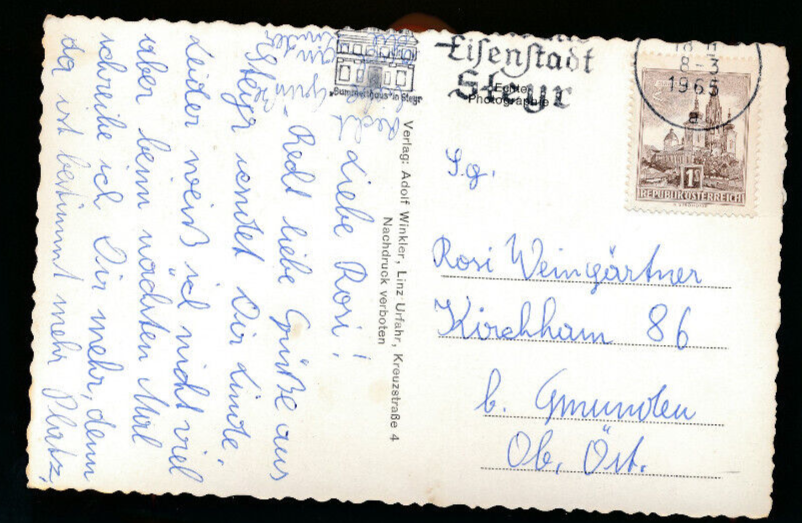 Liebe Rosi!
Recht liebe Grüße aus
Steyr sendet Dir Linde.
Leider weiß ich nicht viel
aber beim nächsten Mal
schreibe ich Dir mehr, denn
da ist bestimmt mehr Platz.
Verlag: Adolf Winkler, Linz-Urfahr, Kreuzstraße 4
Nachdruck verboten
"Bummerlhaus" in Steyr
Eisenstadt
Steyr
Echte
Photographie
8-3
1965
a
1S
REPUBLIK ÖSTERREICH
S.g.
Rosi Weingärtner
Kirchham 86
b. Gmunden
Ob. Öst.